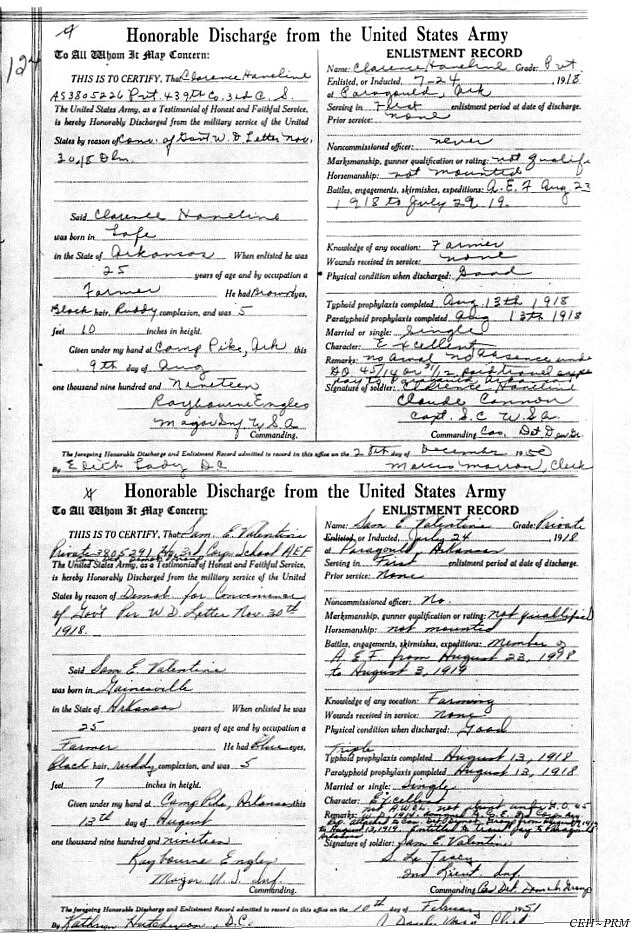 124
Honorable Discharge from the United States Army
To All Whom It May Concern:
THIS IS TO CERTIFY, That Clarence Haneline
AS3805226 Pvt. 439th Co. 3rd C. S.
The United States Army, as a Testimonial of Honest and Faithful Service,
is hereby Honorably Discharged from the military service of the United
States by reason of Conv. of Govt W. D Letter Nov.
30, 18 Dem.
Said Clarence Haneline
was born in Lafe
in the State of Arkansas When enlisted he was
25 years of age and by occupation a
Farmer He had Brown eyes,
Black hair, Ruddy complexion, and was 5
feet 10 inches in height.
Given under my hand at Camp Pike, Ark this
9th day of Aug
one thousand nine hundred and Nineteen
Raybourne Engles
Major Inf. U.S.A
Commanding.
ENLISTMENT RECORD
Name: Clarence Haneline Grade: Pvt
Enlisted, or Inducted, 7-24 1918
at Paragould, Ark
Serving in First enlistment period at date of discharge.
Prior service: none
Noncommissioned officer: never
Marksmanship, gunner qualification or rating: not qualif
Horsemanship: not mounted
Battles, engagements, skirmishes, expeditions: A. E. F Aug 23
1918 to July 29 19.
Knowledge of any vocation: Farmer
Wounds received in service: none
Physical condition when discharged: Good
Typhoid prophylaxis completed Aug 13th 1918
Paratyphoid prophylaxis completed Aug 13th 1918
Married or single: Single
Character: Excellent
Remarks: no awol no absence under
GO 45/14 or 31/12
Signature of soldier: Clarence Haneline
Claude Cannon
Capt. S.C U.S.A.
Commanding Cas. Det.
The foregoing Honorable Discharge and Enlistment Record admitted to record in this office on the 28th day of December 1950
By Edith Lady D C Marcus Marron, Clerk
Honorable Discharge from the United States Army
To All Whom It May Concern:
THIS IS TO CERTIFY, That Sam E. Valentine
Private 3805291 Hq. 3rd Corps School AEF
The United States Army, as a Testimonial of Honest and Faithful Service,
is hereby Honorably Discharged from the military service of the United
States by reason of Demob for Convenience
of Gov't Per W D Letter Nov. 30th
1918.
Said Sam E. Valentine
was born in Gainesville
in the State of Arkansas When enlisted he was
25 years of age and by occupation a
Farmer He had Blue eyes,
Black hair, ruddy complexion, and was 5
feet 7 inches in height.
Given under my hand at Camp Pike, Arkansas this
13th day of August
one thousand nine hundred and nineteen
Raybourne Engles
Major U. S. Inf.
Commanding.
ENLISTMENT RECORD
Name: Sam E Valentine Grade: Private
Enlisted, or Inducted, July 24 1918
at Paragould, Arkansas
Serving in First enlistment period at date of discharge.
Prior service: None
Noncommissioned officer: No.
Marksmanship, gunner qualification or rating: not qualified
Horsemanship: not mounted
Battles, engagements, skirmishes, expeditions: Member of
A. E. F from August 23, 1918
to August 3, 1919
Knowledge of any vocation: Farming
Wounds received in service: None
Physical condition when discharged: Good
Triple
Typhoid prophylaxis completed August 13, 1918
Paratyphoid prophylaxis completed August 13, 1918
Married or single: Single
Character: Excellent
Remarks:
Signature of soldier: Sam E. Valentine
2nd Lieut Inf.
Commanding Cas Det Demob Group
The foregoing Honorable Discharge and Enlistment Record admitted to record in this office on the 10th day of February 1951
By Kathryn Hutcheson, D.C.
CEH~PRM